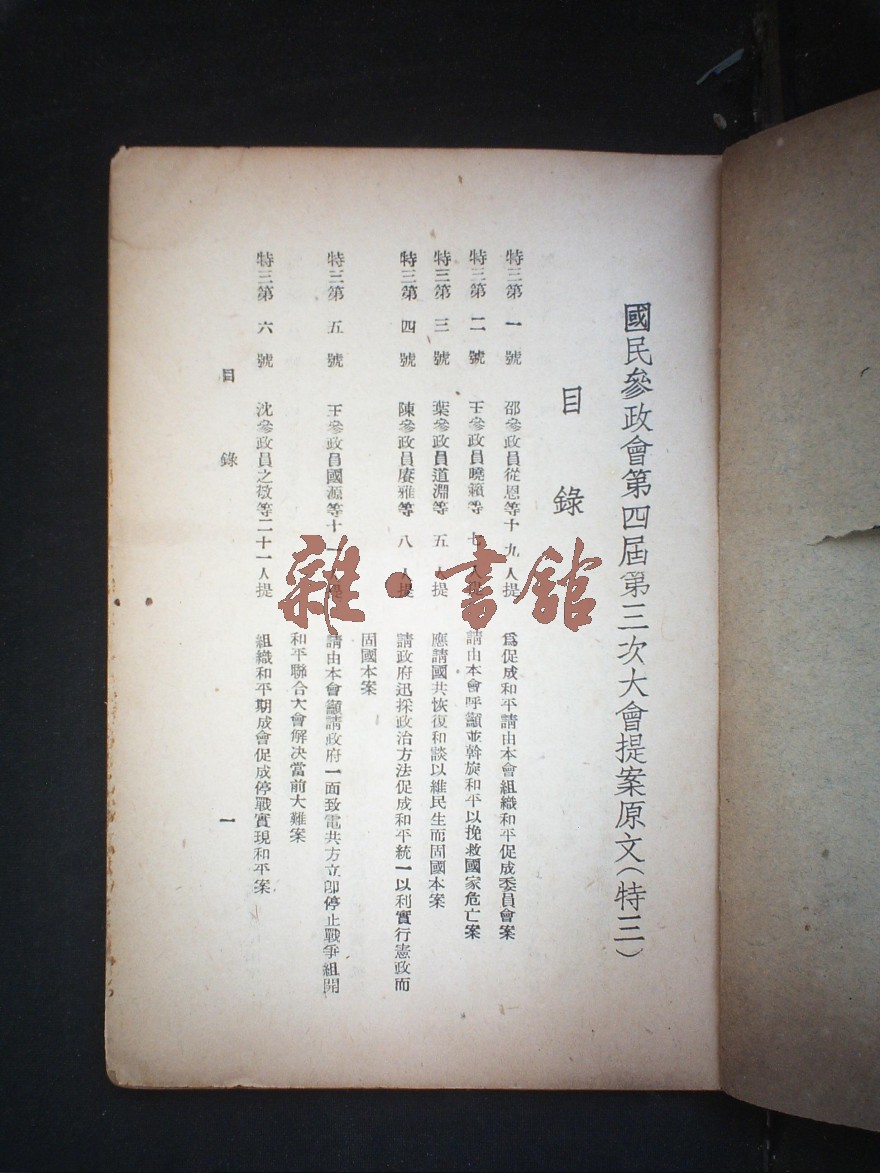 國民參政會第四屆第三次大會提案原文(特三)
目錄
特三第一號 邵參政員從恩等十九人提 爲促成和平請由本會組織和平促成委員會案
特三第二號 王參政員曉籟等七人提 請由本會呼籲並斡旋和平以挽救國家危亡案
特三第三號 葉參政員道淵等五人提 應請國共恢復和談以維民生而固國本案
特三第四號 陳參政員賡雅等八人提 請政府迅採政治方法促成和平統一以利實行憲政而
固國本案
特三第五號 王參政員國源等十一人提 請由本會籲請政府一面致電共方立卽停止戰爭組開
和平聯合大會解决當前大難案
特三第六號 沈參政員之敬等二十一人提 組織和平期成會促成停戰實現和平案
目錄 一
雜·書館